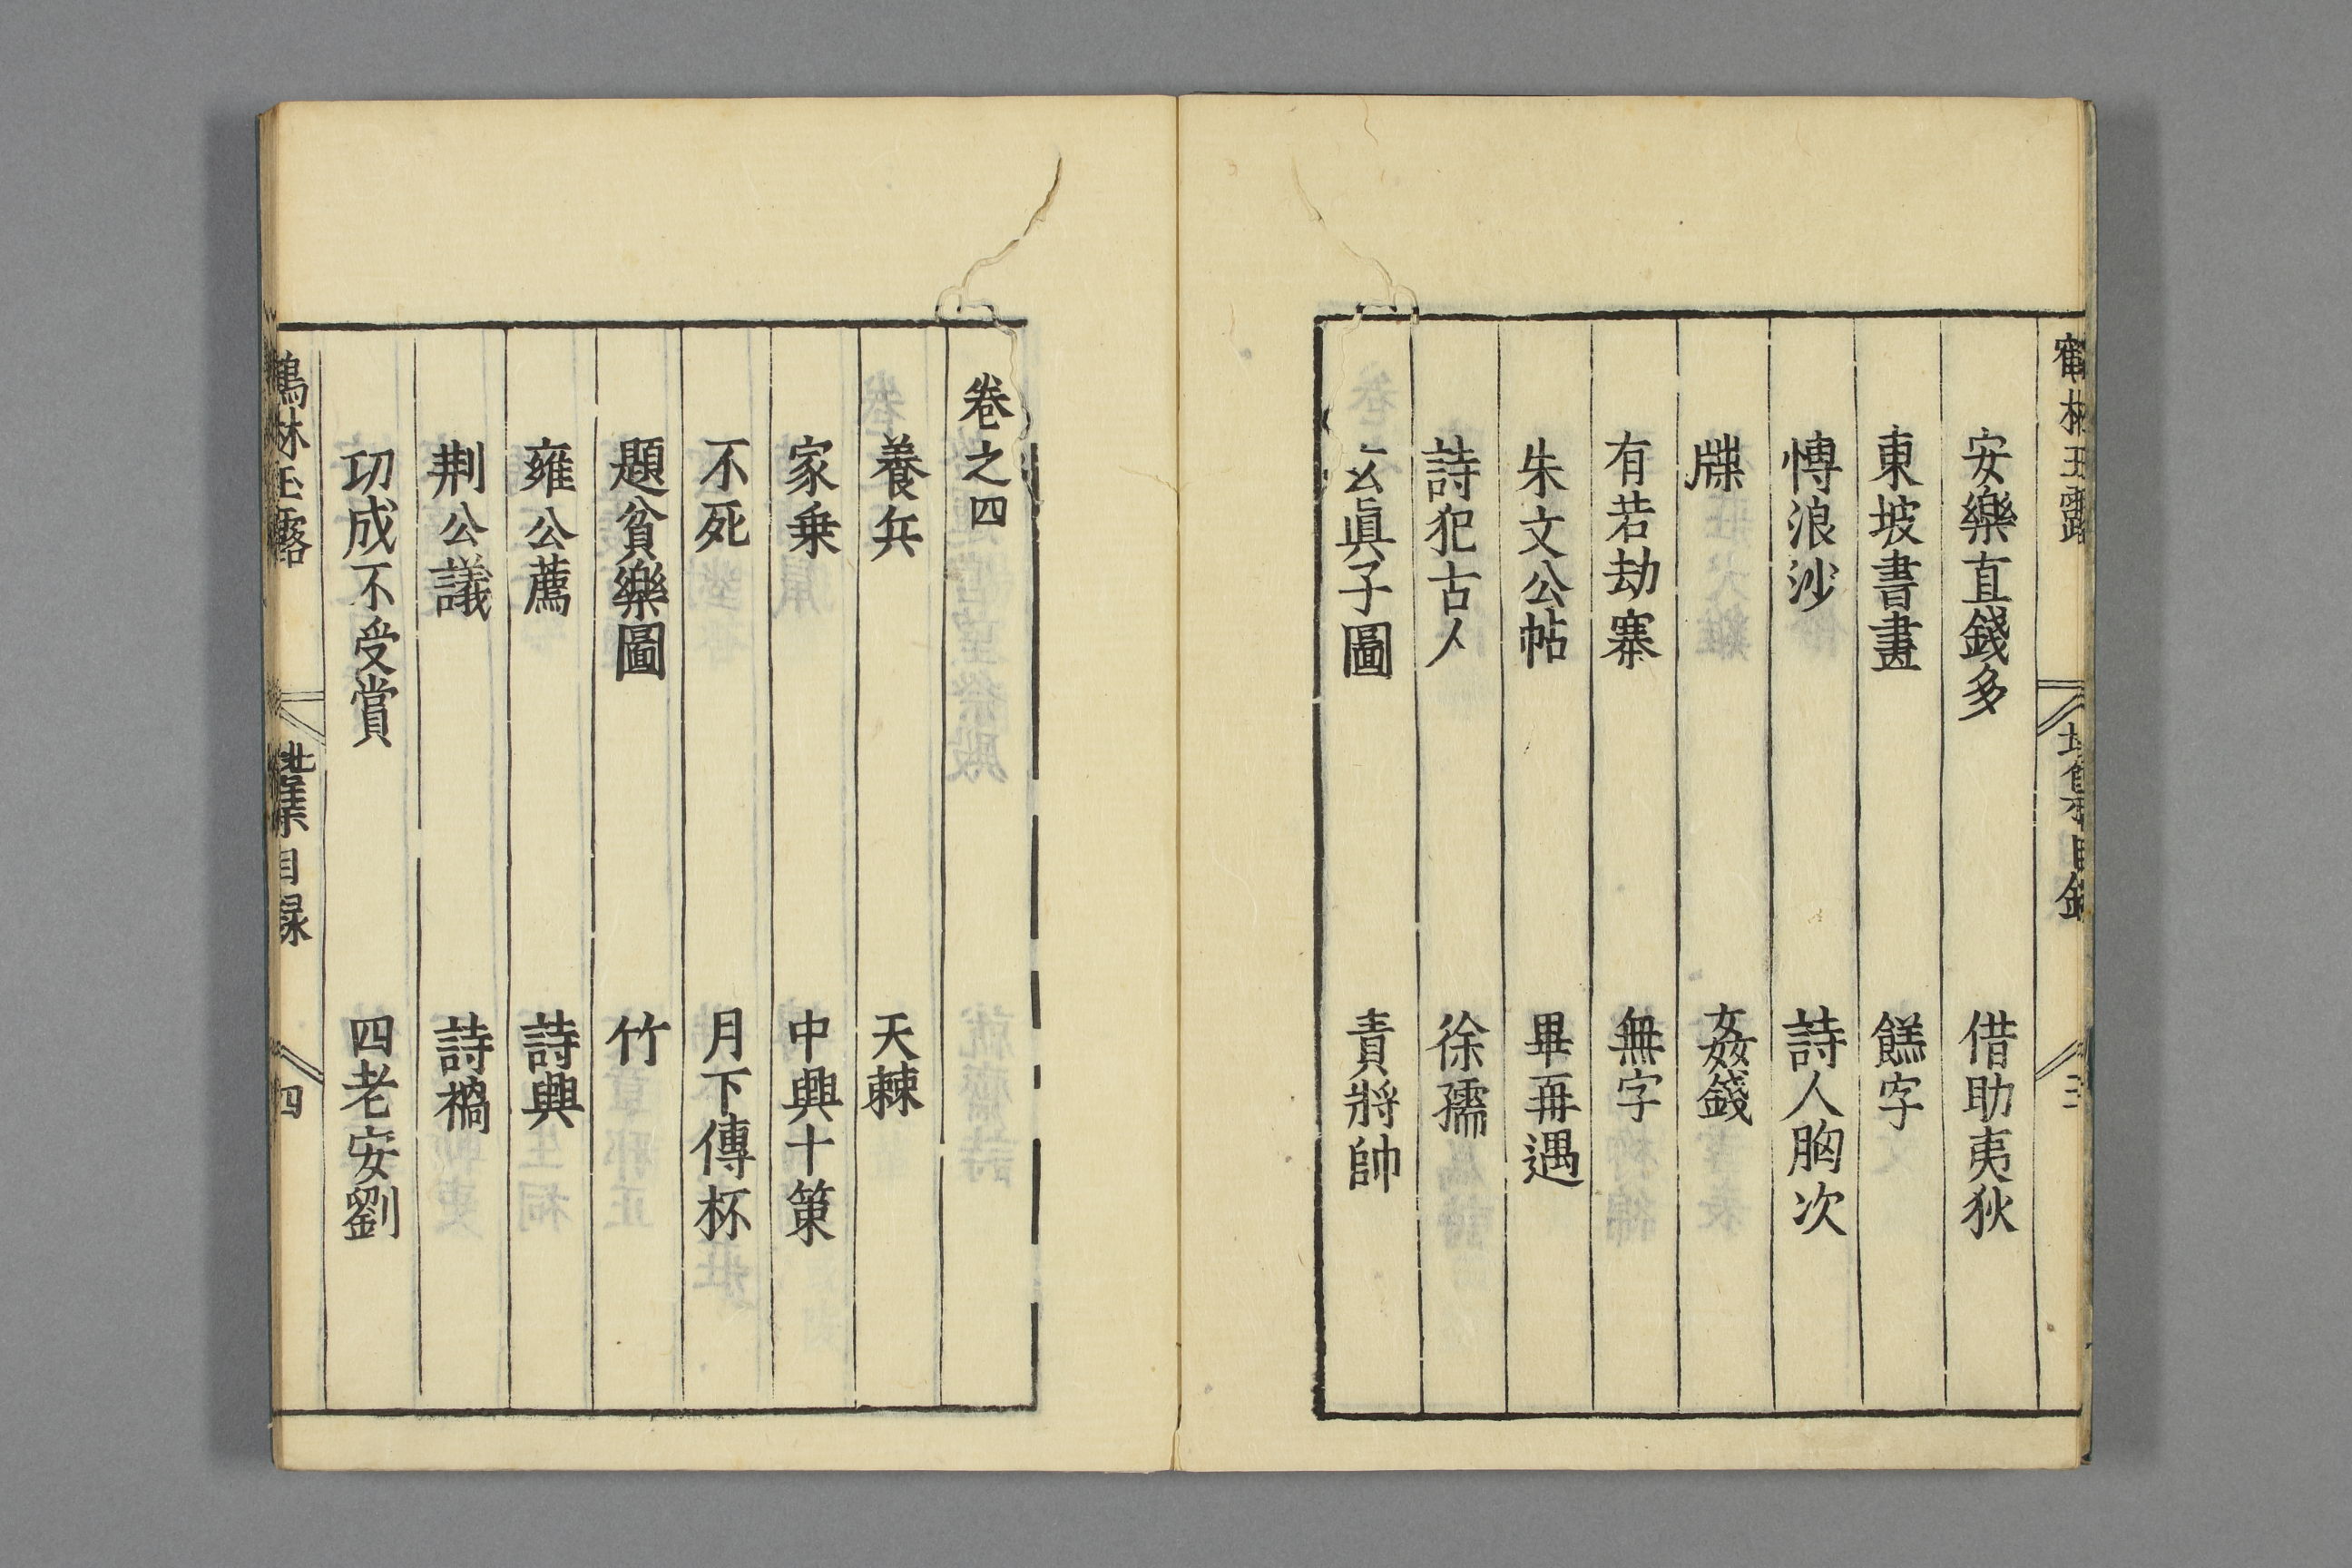 鶴林玉露
地集目錄
三
安樂直錢多 借助夷狄
東坡書畫 餻字
慱浪沙 詩人胸次
牒 姦錢
有若劫寨 無字
朱文公帖 畢再遇
詩犯古人 徐孺
玄眞子圖 責將帥
卷之四
養兵 天棘
家乗 中興十策
不死 月下傳杯
題貧樂圖 竹
雍公薦 詩興
荆公議 詩禍
功成不受賞 四老安劉
鶴林玉露
地集目錄
四